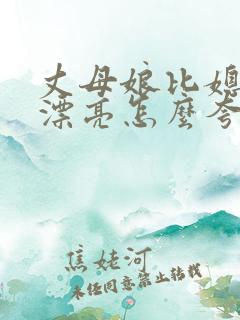 丈母娘比媳
漂亮怎麼夸
焦姥河
未经同意禁止转载